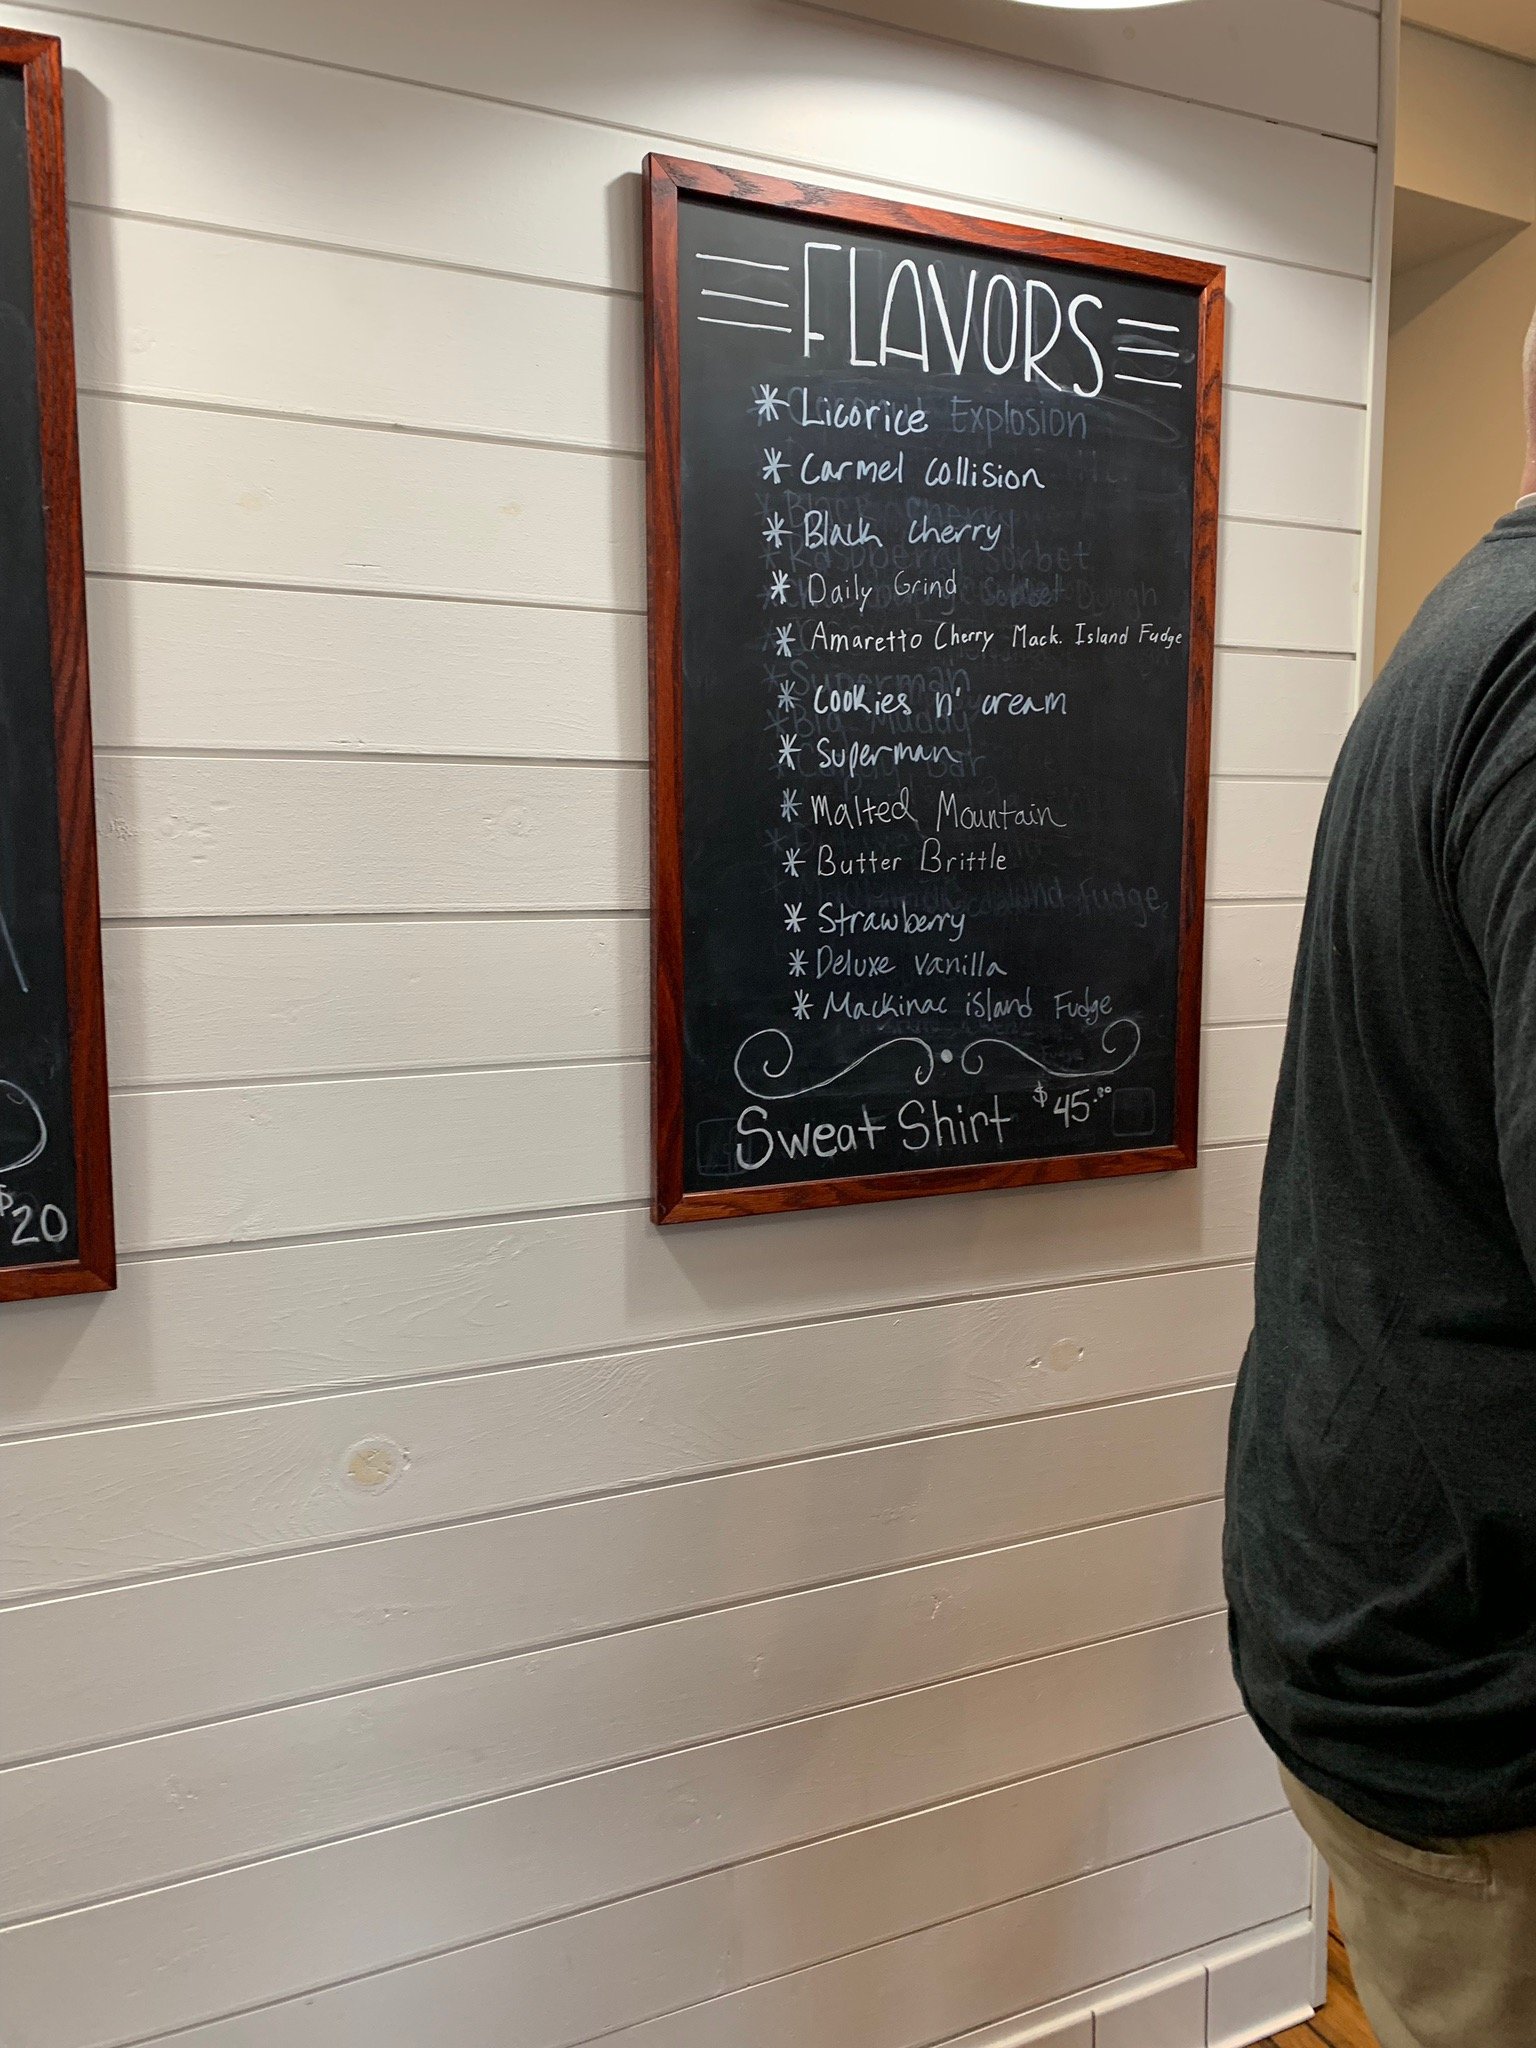 FLAVORS
* Licorice Explosion
* Carmel Collision
* Black Cherry
* Daily Grind
* Amaretto Cherry Mack. Island Fudge
* Cookies n' cream
* Superman
* Malted Mountain
* Butter Brittle
* Strawberry
* Deluxe Vanilla
* Mackinac island Fudge
Sweat Shirt $45.00
$20